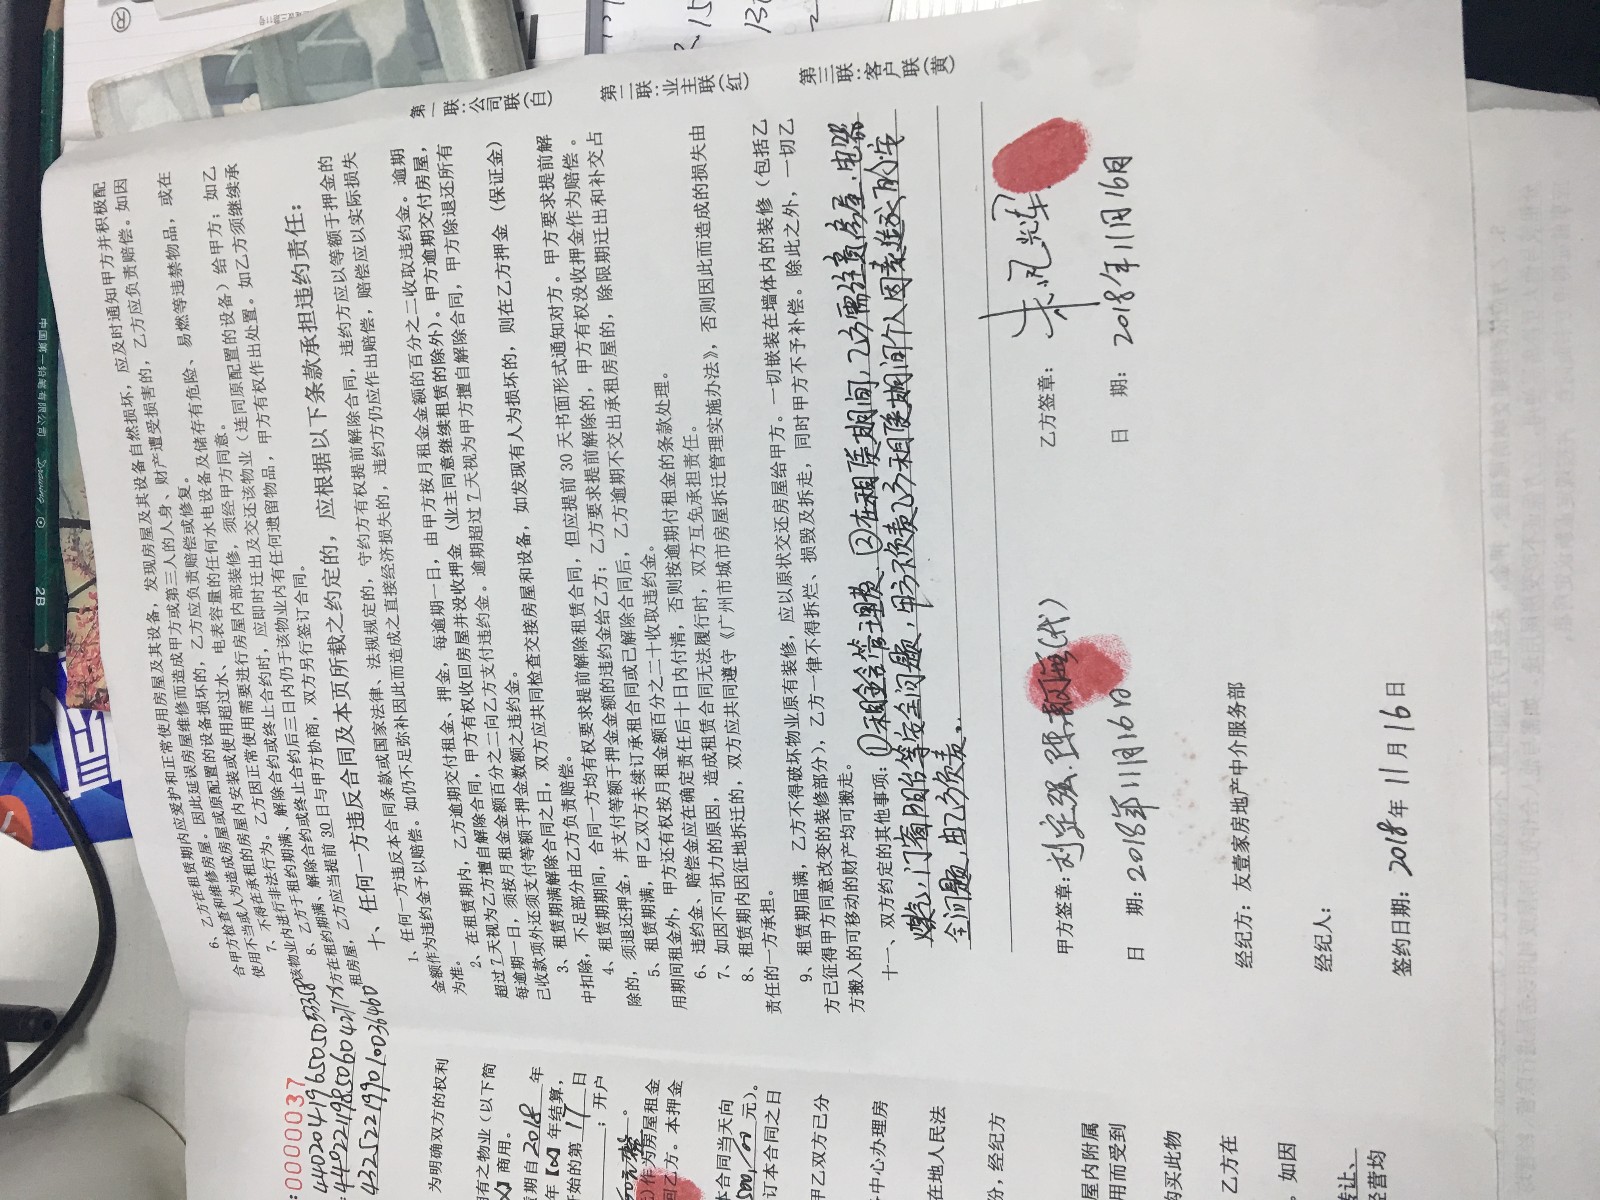 6、乙方在租赁期内应爱护和正常使用房屋及其设备，发现房屋及其设备自然损坏，应及时通知甲方并积极配
合甲方检查和维修房屋。因此延误房屋维修而造成甲方或第三人的人身、财产遭受损害的，乙方应负责赔偿。如因
使用不当或人为造成房屋或原配置的设备损坏的，乙方应负责赔偿或修复。
7、不得在承租的房屋内安装或使用超过水、电表容量的任何水电设备及储存有危险、易燃等违禁物品，或在
该物业内进行非法行为。乙方因正常使用需要进行房屋内部装修，须经甲方同意。
8、乙方于租约期满、解除合约或终止合约时，应即时迁出及交还该物业（连同原配置的设备）给甲方；如乙
方在租约期满、解除合约或终止合约后三日内仍于该物业内有任何遗留物品，甲方有权作出处置。如乙方须继续承
租房屋，乙方应当提前30日与甲方协商，双方另行签订合同。
十、任何一方违反本合同及本页所载之约定的，应根据以下条款承担违约责任：
1、任何一方违反本合同条款或国家法律、法规规定的，守约方有权提前解除合同，违约方应以等额于押金的
金额作为违约金予以赔偿。如仍不足弥补因此而造成之直接经济损失的，违约方仍应作出赔偿，赔偿应以实际损失
为准。
2、在租赁期内，乙方逾期交付租金、押金，每逾期一日，由甲方按月租金金额的百分之二收取违约金。逾期
超过7天视为乙方擅自解除合同，甲方有权收回房屋并没收押金（业主同意继续租赁的除外）。甲方逾期交付房屋，
每逾期一日，须按月租金金额百分之二向乙方支付违约金。逾期超过7天视为甲方擅自解除合同，甲方除退还所有
已收款项外还须支付等额于押金数额之违约金。
3、租赁期满解除合同之日，双方应共同检查交接房屋和设备，如发现有人为损坏的，则在乙方押金（保证金）
中扣除，不足部分由乙方负责赔偿。
4、租赁期期间，合同一方均有权要求提前解除租赁合同，但应提前30天书面形式通知对方。甲方要求提前解
除的，须退还押金，并支付等额于押金金额的违约金给乙方；乙方要求提前解除的，甲方有权没收押金作为赔偿。
5、租赁期满，甲乙双方未续订承租合同或已解除合同后，乙方逾期不交出承租房屋的，除限期迁出和补交占
用期间租金外，甲方还有权按月租金额百分之二十收取违约金。
6、违约金、赔偿金应在确定责任后十日内付清，否则按逾期付租金的条款处理。
7、如因不可抗力的原因，造成租赁合同无法履行时，双方互免承担责任。
8、租赁期内因征地拆迁的，双方应共同遵守《广州市城市房屋拆迁管理实施办法》，否则因此而造成的损失由
责任的一方承担。
9、租赁期届满，乙方不得破坏物业原有装修，应以原状交还房屋给甲方。一切嵌装在墙体内的装修（包括乙
方已征得甲方同意改变的装修部分），乙方一律不得拆烂、损毁及拆走，同时甲方不予补偿。除此之外，一切乙
方搬入的可移动的财产均可搬走。
十一、双方约定的其他事项：①租金含管理费.②在租赁期间，乙方需注意房屋.电器
燃气，门窗阳台等安全问题，甲方不负责乙方租赁期间个人因素造成的安
全问题，由乙方负责.
甲方签章：刘定强.陈淑（代）
日 期：2018年11月16日
乙方签章：朱凤辉
日 期：2018年11月16日
经纪方：友壹家房地产中介服务部
经纪人：
签约日期：2018年11月16日
第一联：公司联（白）
第二联：业主联（红）
第三联：客户联（黄）
:0000037
为明确双方的权利
有之物业（以下简
商用。
期自2018年
年结算，
开始的第17日
；开户
作为房屋租金
回乙方。本押金
本合同当天向
元）。
订本合同之日
甲乙双方已分
中心办理房
在地人民法
分，经纪方
屋内附属
用而受到
购买此物
乙方在
，如因
转让、
经营均
中国第一铅笔有限公司
2B